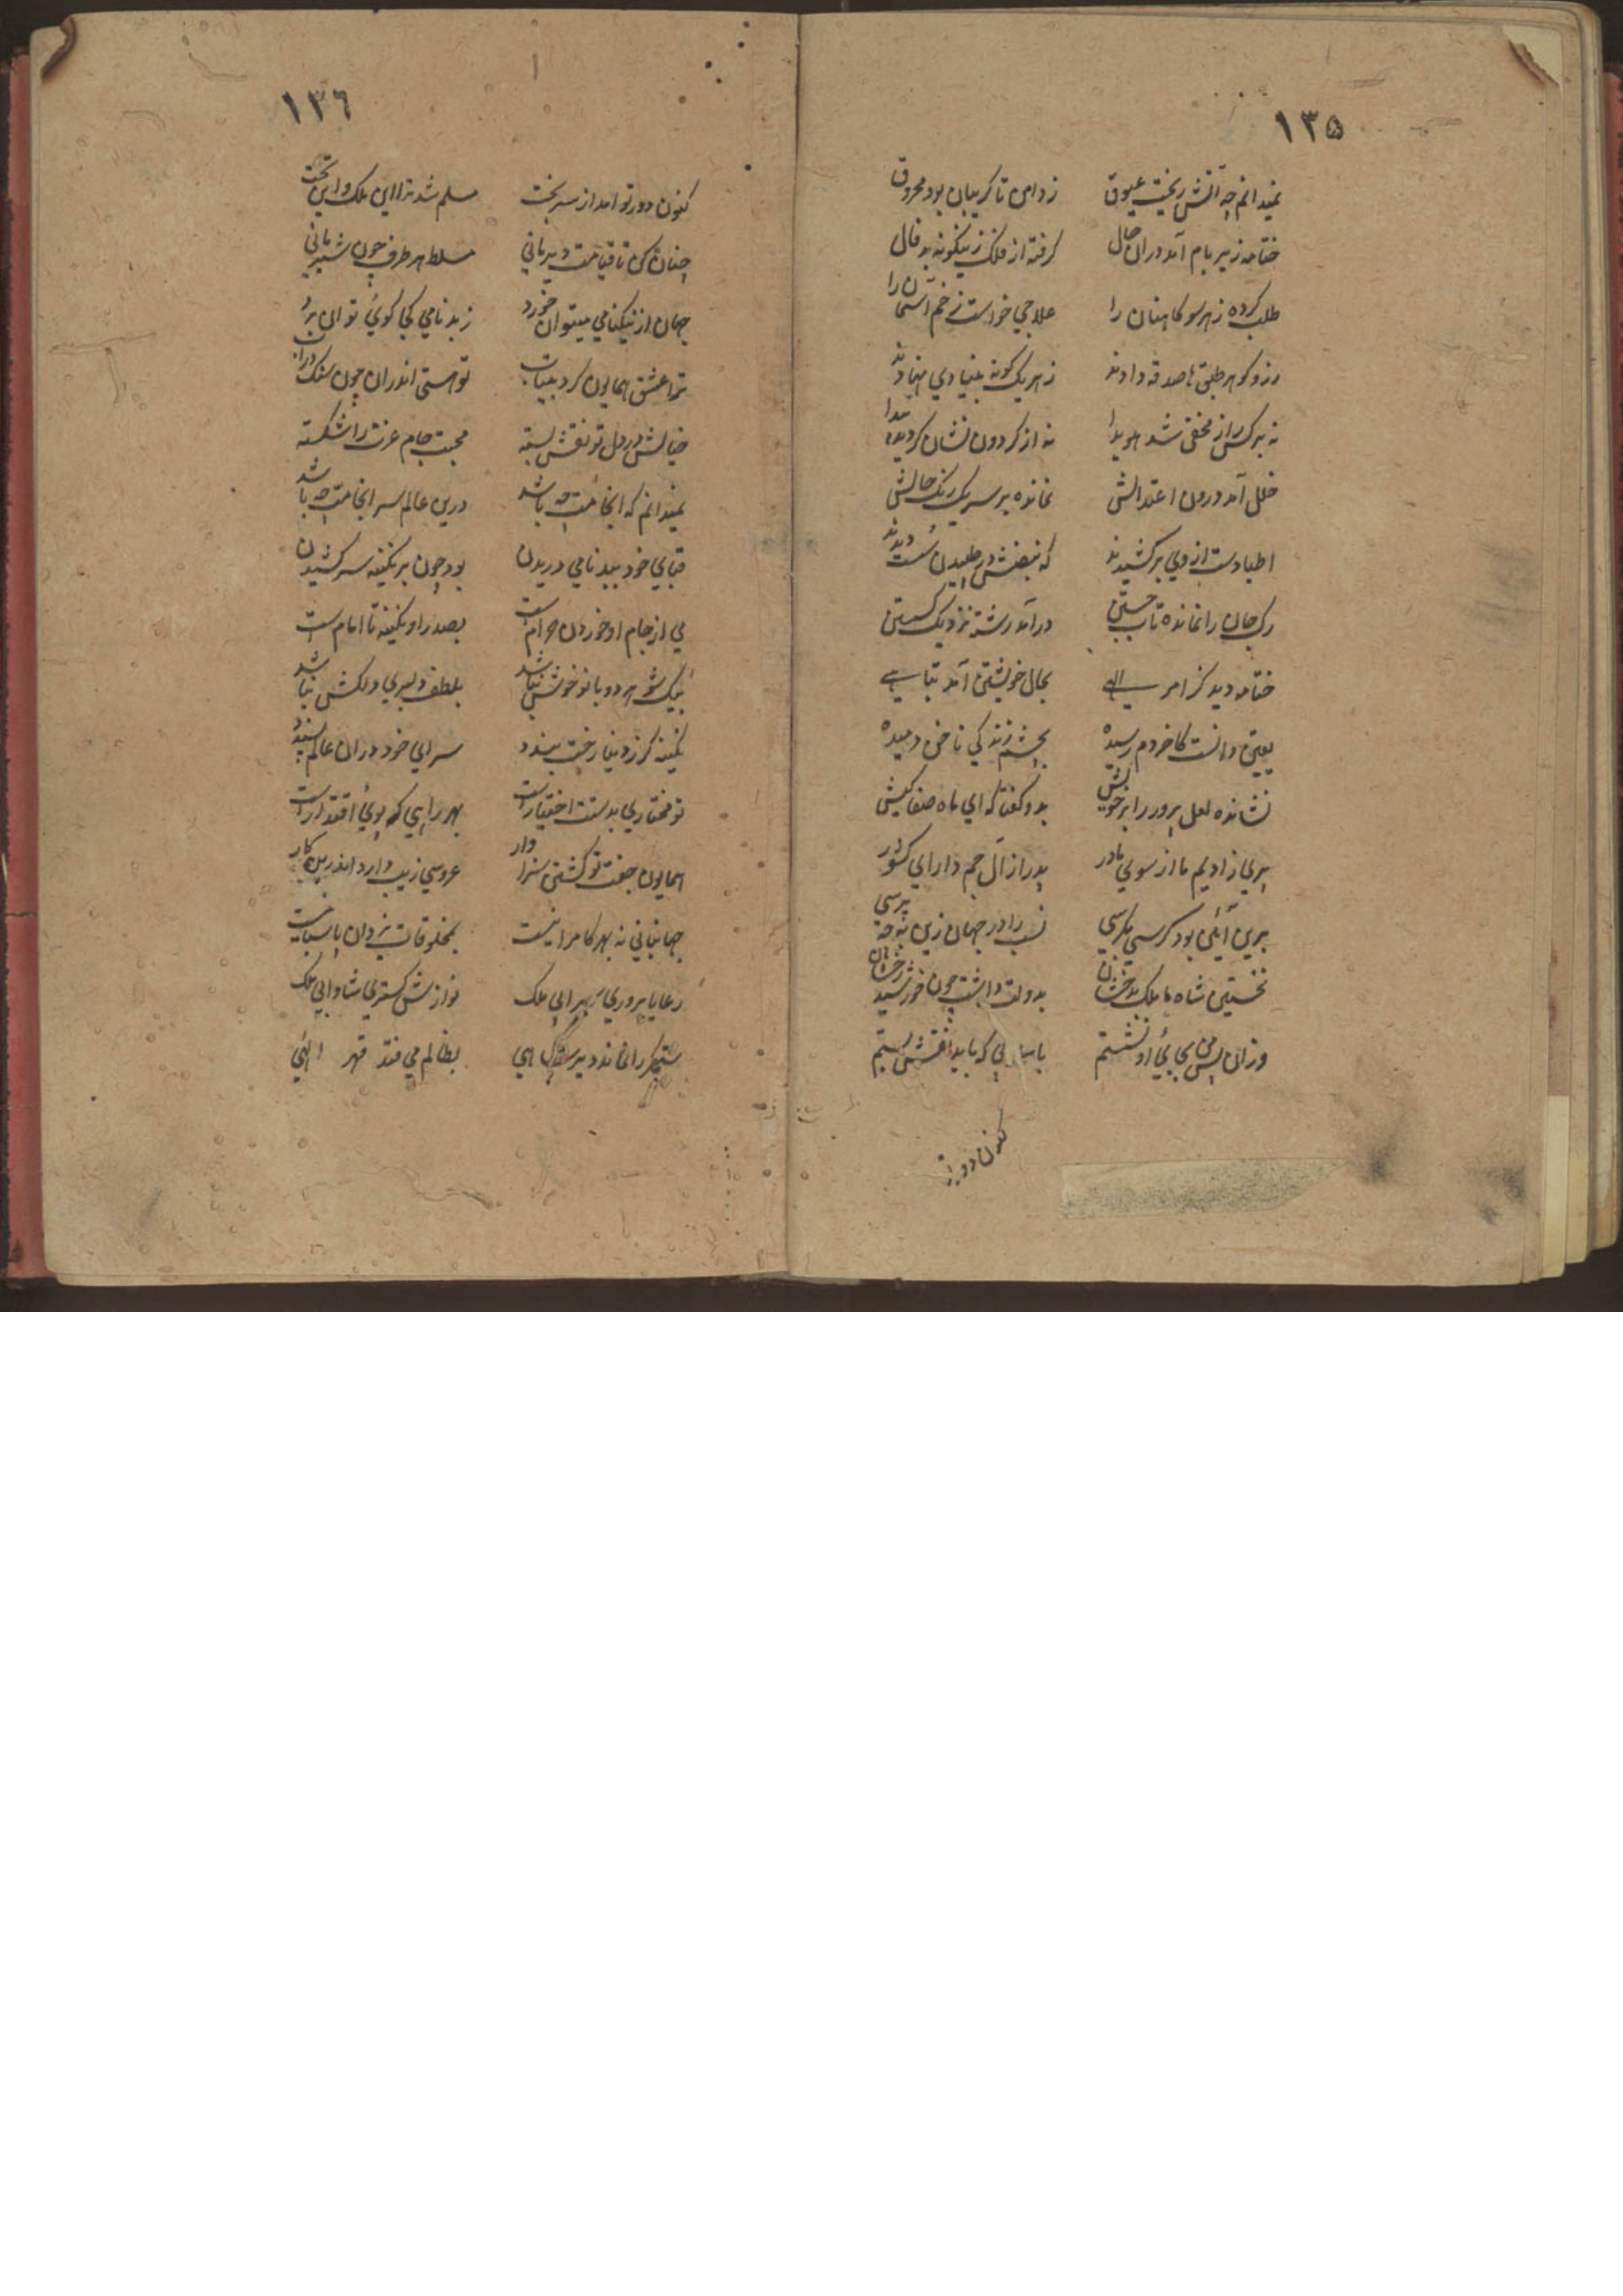 ١٣٥
نمیدانم چه آتش ریخت عیوق زدامن تا کریبان بود محروق
ختامه زیر بام آمد دران حال کرفته از فلک زینکونه بد فال
طلب کرده زهر سو کاهنان را علاجی خواست زخم آسمان را
زر و کوهر طبق ها صدقه دادند زهر یک کونه بنیادی نهادند
نه بر کس راز مخفی شد هویدا نه از کردون نشان کردیده پیدا
خلل آمد درون اعتدالش نمانده بر سر یک رنک حالش
اطبا دست از وی برکشیدند که نبضش در طپیدن سست دیدند
رک جان را نمانده تاب جستن درآمد رشته نزدیک کسستن
ختامه دید کز امر الهی بحال خویشتن آمد تباهی
یقین دانست کاخر دم رسیده بچشم زندکی ناخن دمیده
نشانده لعل پرور را بر خویش بدو کفتا که ای ماه صفا کیش
پریزادیم ما از سوی مادر پدر از آل جم دارای کشور
برین آئین بود کرسی بکرسی نسب را در جهان زین نوحه پرسی
نخستین شاه ما بلک بدخشان بدولت داشت چون خورشید رخشان
وزان پس من بجای او نشستم باسبابی که باید نقش بستم
کنون دور تو
١٣٦
کنون دور تو امد از سر بخت مسلم شد ترا این ملک و این تخت
چنان کن تا قیامت دیر مانی مسلط هر طرف چون شیر مانی
جهان از نیکنامی میتوان خورد زبدنامی کجا کوئ توان برد
ترا عشق همایون کرد بیتاب تو هستی اندران چون سنک
خیالش در دل تو نقش بسته محبت جام عزت را شکسته
نمیدانم که انجامت چه باشد درین عالم سرانجامت چه باشد
قبای خود ببدنامی دریدن بود چون بر نکینه سر کشیدن
می از جام او خوردن حرام است بصدر او نکینه تا امام است
بیک شوهر دو بانو خوش نباشد بلطف دلبری دلکش نباشد
نکینه کر زدنیا رخت بندد سرای خود دران عالم پسندد
تو مختاری بدستت اختیار است بهر راهی که پوئ اقتدار است
همایون جفت تو کشتن سزاوار عروسی زیب دارد اندرین کار
جهانبانی نه بهر کامرانیست بمخلوقات یزدان پاسبانیست
رعایا پروری پیرای ملک نوازش کستری شادابی ملک
ستمکر را نماند دیر بظالم می فتد قهر الهی